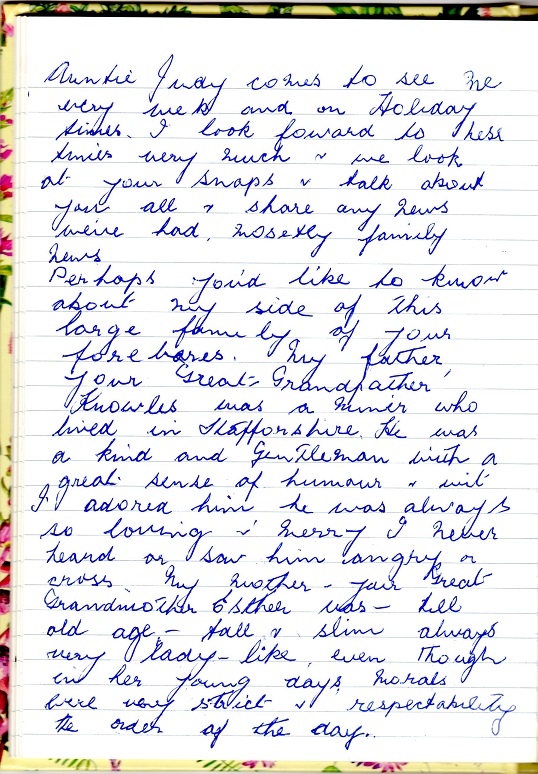 Auntie Judy comes to see me
every week and on Holiday
times. I look foward to these
times very much & we look
at your snaps & talk about
you all & share any news
we've had, mosetly family
news
Perhaps you'd like to know
about my side of this
large family of your
forebares. My father,
your Great-Grandfather
Knowles was a miner who
lived in Stafforshire. He was
a kind and Gentleman with a
great sense of humour & wit
I adored him he was always
so loving & merry I never
heard or saw him angry or
cross My mother - your Great
Grandmother Esther was - till
old age - tall & slim always
very lady-like, even though
in her young days, morals
were very strict & respectability
the order of the day..